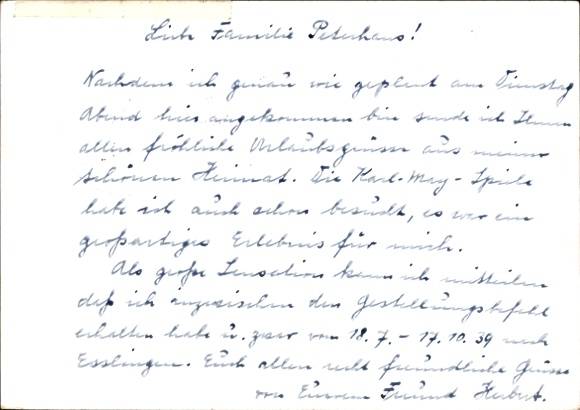 Liebe Familie Peterhans!
Nachdem ich genau wie geplant am Dienstag
Abend hier angekommen bin sende ich Ihnen
allen fröhliche Urlaubsgrüsse aus meiner
schönen Heimat. Die Karl-May-Spiele
habe ich auch schon besucht, es war ein
großartiges Erlebnis für mich.
Als große Sensation kann ich mitteilen
daß ich inzwischen den Gestellungsbefehl
erhalten habe u. zwar vom 18.7.-17.10.39 nach
Esslingen. Euch allen recht freundliche Grüsse
von Eurem Freund Herbert.